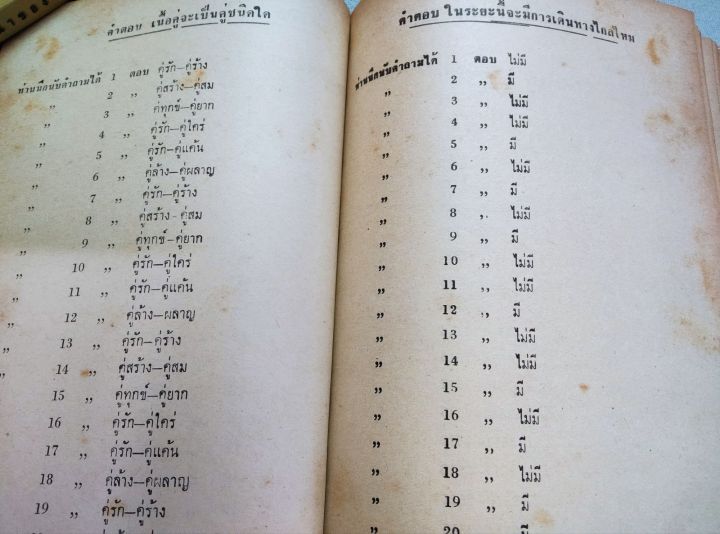 คำตอบ เนื้อคู่จะเป็นคู่ชนิดใด
ท่านนึกนับคำถามได้ 1 ตอบ คู่รัก–คู่ร้าง
„ 2 „ คู่สร้าง–คู่สม
„ 3 „ คู่ทุกข์–คู่ยาก
„ 4 „ คู่รัก–คู่ใคร่
„ 5 „ คู่รัก–คู่แค้น
„ 6 „ คู่ล้าง–คู่ผลาญ
„ 7 „ คู่รัก–คู่ร้าง
„ 8 „ คู่สร้าง–คู่สม
„ 9 „ คู่ทุกข์–คู่ยาก
„ 10 „ คู่รัก–คู่ใคร่
„ 11 „ คู่รัก–คู่แค้น
„ 12 „ คู่ล้าง–ผลาญ
„ 13 „ คู่รัก–คู่ร้าง
„ 14 „ คู่สร้าง–คู่สม
15 „ คู่ทุกข์–คู่ยาก
16 „ คู่รัก–คู่ใคร่
17 „ คู่รัก–คู่แค้น
18 „ คู่ล้าง–คู่ผลาญ
19 „ คู่รัก–คู่ร้าง
คำตอบ ในระยะนี้จะมีการเดินทางไกลไหม
ท่านนึกนับคำถามได้ 1 ตอบ ไม่มี
„ 2 „ มี
„ 3 „ ไม่มี
„ 4 „ ไม่มี
„ 5 „ มี
„ 6 „ ไม่มี
„ 7 „ มี
„ 8 „ ไม่มี
„ 9 „ มี
„ 10 „ ไม่มี
„ 11 „ ไม่มี
„ 12 „ มี
„ 13 „ ไม่มี
„ 14 „ ไม่มี
„ 15 „ มี
„ 16 „ ไม่มี
„ 17 „ มี
„ 18 „ ไม่มี
„ 19 „ มี
„ 20 „ มี